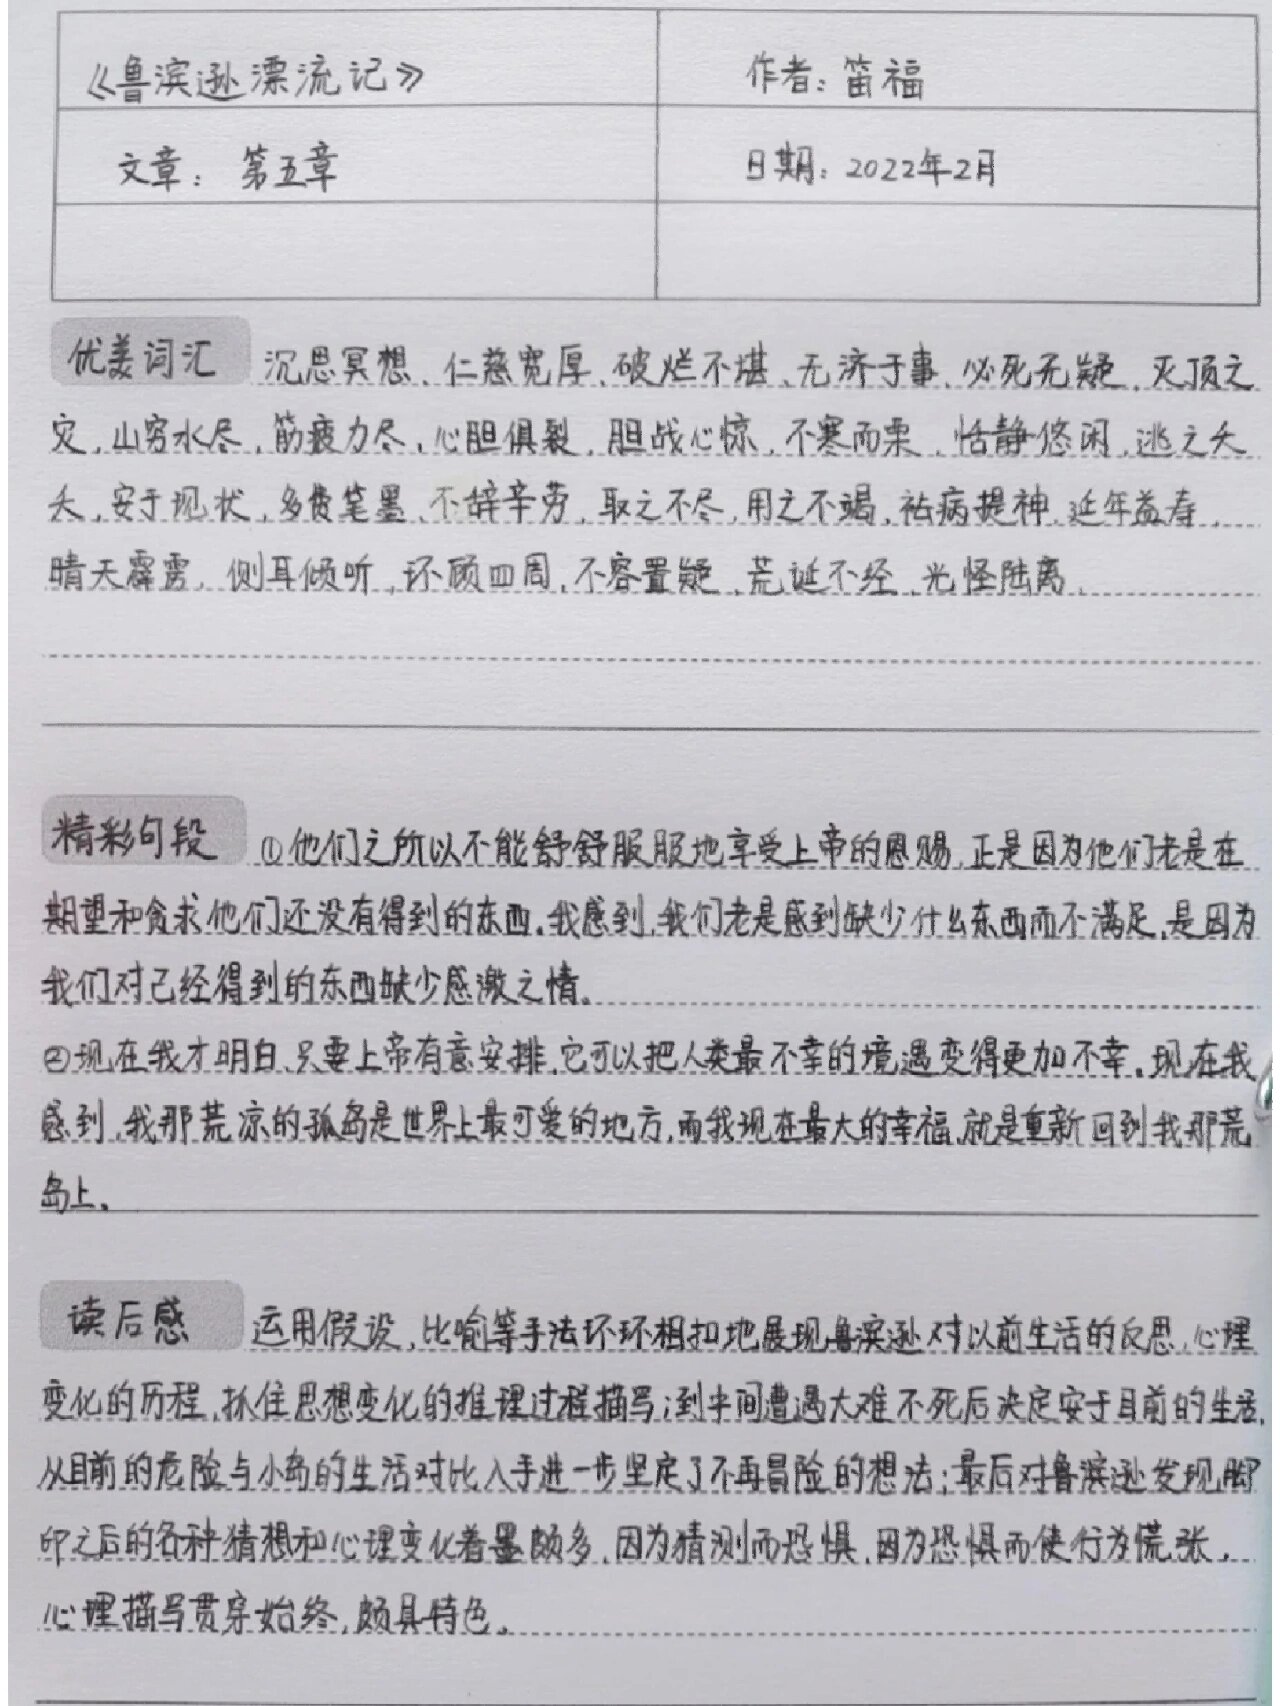 《鲁滨逊漂流记》 作者：笛福
文章：第五章 日期：2022年2月
优美词汇 沉思冥想、仁慈宽厚、破烂不堪、无济于事、必死无疑、灭顶之
灾，山穷水尽，筋疲力尽，心胆俱裂，胆战心惊，不寒而栗，恬静悠闲，逃之夭
夭，安于现状，多费笔墨、不辞辛劳，取之不尽，用之不竭，祛病提神，延年益寿，
晴天霹雳，侧耳倾听，环顾四周，不容置疑、荒诞不经、光怪陆离、
精彩句段 ①他们之所以不能舒舒服服地享受上帝的恩赐，正是因为他们老是在
期望和贪求他们还没有得到的东西。我感到，我们老是感到缺少什么东西而不满足，是因为
我们对已经得到的东西缺少感激之情。
②现在我才明白，只要上帝有意安排，它可以把人类最不幸的境遇变得更加不幸。现在我
感到，我那荒凉的孤岛是世界上最可爱的地方，而我现在最大的幸福，就是重新回到我那荒
岛上。
读后感 运用假设，比喻等手法环环相扣地展现鲁滨逊对以前生活的反思，心理
变化的历程，抓住思想变化的推理过程描写；到中间遭遇大难不死后决定安于目前的生活，
从目前的危险与小岛的生活对比入手进一步坚定了不再冒险的想法；最后对鲁滨逊发现脚
印之后的各种猜想和心理变化着墨颇多，因为猜测而恐惧，因为恐惧而使行为慌张，
心理描写贯穿始终，颇具特色。